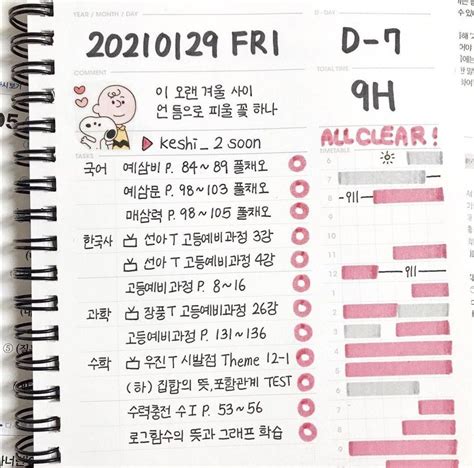 YEAR / MONTH / DAY
D-DAY
20210129 FRI
D-7
COMMENT
TOTAL TIME
이 오랜 겨울 사이
언 틈으로 피울 꽃 하나
9H
▶ keshi _ 2 soon
ALL CLEAR!
TASKS
TIMETABLE
국어 예삼비 P. 84~89 풀채오
예삼문 P. 98~103 풀채오
매삼력 P. 98~105 풀채오
한국사 선아T 고등예비과정 3강
선아T 고등예비과정 4강
고등예비과정 P. 8~16
과학 장풍T 고등예비과정 26강
고등예비과정 P. 131~136
수학 우진T 시발점 Theme 12-1
(하) 집합의 뜻,포함관계 TEST
수력충전 수I P. 53~56
로그함수의 뜻과 그래프 학습
6
7
8 911
9
10
11
12 911
1
2
3
4
5
6
7
8
9